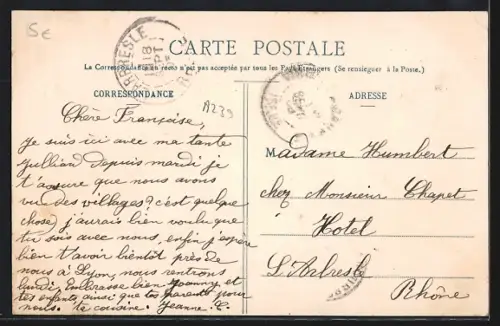 5€
CARTE POSTALE
La Correspondance au recto n'est pas acceptée par tous les Pays Etrangers (Se renseigner à la Poste.)
CORRESPONDANCE
ADRESSE
A239
Chère Françoise,
je suis ici avec ma tante
Jullian depuis mardi je
t'assure que nous avons
vu des villages? c'est quelque
chose) j'aurais bien voulu que
tu sois avec nous, enfin j'espère
bien t'avoir bientôt près de
nous à Lyon, nous rentrons
lundi. Embrasse bien Joanny et
tes enfants, ainsi que tes parents pour
nous. ta cousine. Jeanne. C.
Madame Humbert
chez Monsieur Chapet
Hotel
L'Arbresle
Rhône